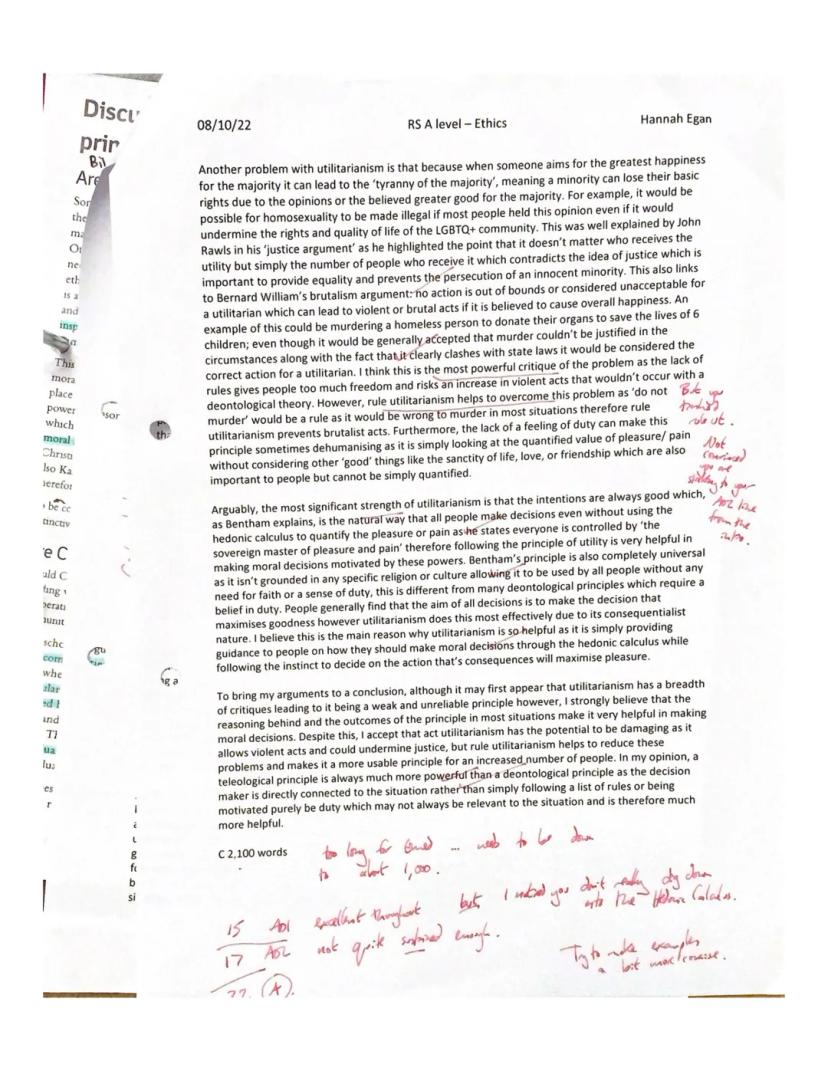 Discu
prin
Bi
Are
Sor
the
ma
O
ne
eth
is a
and
insp
a
This
mora
place
power
which
moral
Christi
lso Ka
herefor
be cc
tinctiv
e C
uld C
ting
perati
unit
sche
com
whe
alar
ed l
and
Tl
ua
lua
es
r
sor
th
gu
g a
g
fo
b
si
08/10/22 RS A level – Ethics Hannah Egan
Another problem with utilitarianism is that because when someone aims for the greatest happiness
for the majority it can lead to the ‘tyranny of the majority’, meaning a minority can lose their basic
rights due to the opinions or the believed greater good for the majority. For example, it would be
possible for homosexuality to be made illegal if most people held this opinion even if it would
undermine the rights and quality of life of the LGBTQ+ community. This was well explained by John
Rawls in his ‘justice argument’ as he highlighted the point that it doesn’t matter who receives the
utility but simply the number of people who receive it which contradicts the idea of justice which is
important to provide equality and prevents the persecution of an innocent minority. This also links
to Bernard William’s brutalism argument: no action is out of bounds or considered unacceptable for
a utilitarian which can lead to violent or brutal acts if it is believed to cause overall happiness. An
example of this could be murdering a homeless person to donate their organs to save the lives of 6
children; even though it would be generally accepted that murder couldn’t be justified in the
circumstances along with the fact that it clearly clashes with state laws it would be considered the
correct action for a utilitarian. I think this is the most powerful critique of the problem as the lack of
rules gives people too much freedom and risks an increase in violent acts that wouldn’t occur with a
deontological theory. However, rule utilitarianism helps to overcome this problem as ‘do not
murder’ would be a rule as it would be wrong to murder in most situations therefore rule
utilitarianism prevents brutalist acts. Furthermore, the lack of a feeling of duty can make this
principle sometimes dehumanising as it is simply looking at the quantified value of pleasure/ pain
without considering other ‘good’ things like the sanctity of life, love, or friendship which are also
important to people but cannot be simply quantified.
But you
rule ut.
Not
convinced
you are
sticking to your
AO2 line
from the
intro.
Arguably, the most significant strength of utilitarianism is that the intentions are always good which,
as Bentham explains, is the natural way that all people make decisions even without using the
hedonic calculus to quantify the pleasure or pain as he states everyone is controlled by ‘the
sovereign master of pleasure and pain’ therefore following the principle of utility is very helpful in
making moral decisions motivated by these powers. Bentham’s principle is also completely universal
as it isn’t grounded in any specific religion or culture allowing it to be used by all people without any
need for faith or a sense of duty, this is different from many deontological principles which require a
belief in duty. People generally find that the aim of all decisions is to make the decision that
maximises goodness however utilitarianism does this most effectively due to its consequentialist
nature. I believe this is the main reason why utilitarianism is so helpful as it is simply providing
guidance to people on how they should make moral decisions through the hedonic calculus while
following the instinct to decide on the action that’s consequences will maximise pleasure.
To bring my arguments to a conclusion, although it may first appear that utilitarianism has a breadth
of critiques leading to it being a weak and unreliable principle however, I strongly believe that the
reasoning behind and the outcomes of the principle in most situations make it very helpful in making
moral decisions. Despite this, I accept that act utilitarianism has the potential to be damaging as it
allows violent acts and could undermine justice, but rule utilitarianism helps to reduce these
problems and makes it a more usable principle for an increased number of people. In my opinion, a
teleological principle is always much more powerful than a deontological principle as the decision
maker is directly connected to the situation rather than simply following a list of rules or being
motivated purely be duty which may not always be relevant to the situation and is therefore much
more helpful.
C 2,100 words
too long for timed ... needs to be down
to about 1,000.
15 AO1 excellent throughout but I noticed you don't really dig down
into the Hedonic Calculus.
17 AO2 not quite sustained enough.
Try to make examples
a bit more concise.
(A).